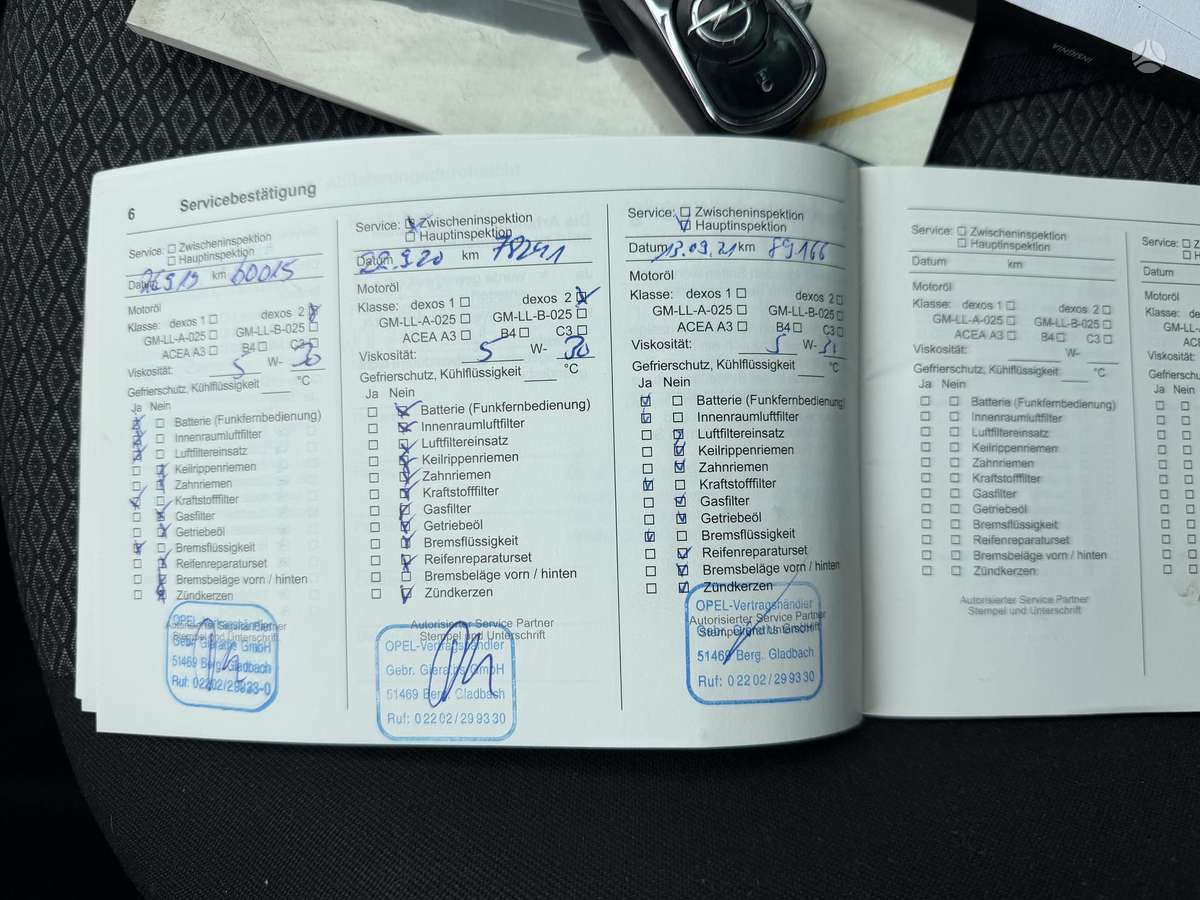 INSIGNIA
6 Servicebestätigung
Service: ☐ Zwischeninspektion
☐ Hauptinspektion
Datum 26.9.19 km 60015
Motoröl
Klasse: dexos 1 ☐ dexos 2 ☑
GM-LL-A-025 ☐ GM-LL-B-025 ☐
ACEA A3 ☐ B4 ☐ C3 ☐
Viskosität: 5 W- 30
Gefrierschutz, Kühlflüssigkeit ____ °C
Ja Nein
☑ ☐ Batterie (Funkfernbedienung)
☑ ☐ Innenraumluftfilter
☑ ☐ Luftfiltereinsatz
☐ ☑ Keilrippenriemen
☐ ☑ Zahnriemen
☑ ☐ Kraftstofffilter
☐ ☑ Gasfilter
☐ ☑ Getriebeöl
☑ ☐ Bremsflüssigkeit
☐ ☑ Reifenreparaturset
☐ ☑ Bremsbeläge vorn / hinten
☐ ☑ Zündkerzen
Autorisierter Service Partner
Stempel und Unterschrift
OPEL-Vertragshändler
Gebr. Gieraths GmbH
51469 Berg. Gladbach
Ruf: 02202/29933-0
Service: ☑ Zwischeninspektion
☐ Hauptinspektion
Datum 22.9.20 km 78241
Motoröl
Klasse: dexos 1 ☐ dexos 2 ☑
GM-LL-A-025 ☐ GM-LL-B-025 ☐
ACEA A3 ☐ B4 ☐ C3 ☐
Viskosität: 5 W- 30
Gefrierschutz, Kühlflüssigkeit ____ °C
Ja Nein
☐ ☑ Batterie (Funkfernbedienung)
☐ ☑ Innenraumluftfilter
☐ ☑ Luftfiltereinsatz
☐ ☑ Keilrippenriemen
☐ ☑ Zahnriemen
☐ ☑ Kraftstofffilter
☐ ☑ Gasfilter
☐ ☑ Getriebeöl
☐ ☑ Bremsflüssigkeit
☐ ☑ Reifenreparaturset
☐ ☐ Bremsbeläge vorn / hinten
☐ ☑ Zündkerzen
Autorisierter Service Partner
Stempel und Unterschrift
OPEL-Vertragshändler
Gebr. Gieraths GmbH
51469 Berg. Gladbach
Ruf: 0 22 02 / 29 93 30
Service: ☐ Zwischeninspektion
☑ Hauptinspektion
Datum 13.09.21 km 89166
Motoröl
Klasse: dexos 1 ☐ dexos 2 ☐
GM-LL-A-025 ☐ GM-LL-B-025 ☐
ACEA A3 ☐ B4 ☐ C3 ☐
Viskosität: 5 W-
Gefrierschutz, Kühlflüssigkeit ____ °C
Ja Nein
☑ ☐ Batterie (Funkfernbedienung)
☑ ☐ Innenraumluftfilter
☐ ☑ Luftfiltereinsatz
☐ ☑ Keilrippenriemen
☐ ☑ Zahnriemen
☑ ☐ Kraftstofffilter
☐ ☑ Gasfilter
☐ ☑ Getriebeöl
☑ ☐ Bremsflüssigkeit
☐ ☑ Reifenreparaturset
☐ ☑ Bremsbeläge vorn / hinten
☐ ☑ Zündkerzen
OPEL-Vertragshändler
Autorisierter Service Partner
Stempel und Unterschrift
Gebr. Gieraths GmbH
51469 Berg. Gladbach
Ruf: 0 22 02 / 29 93 30
Service: ☐ Zwischeninspektion
☐ Hauptinspektion
Datum km
Motoröl
Klasse: dexos 1 ☐ dexos 2 ☐
GM-LL-A-025 ☐ GM-LL-B-025 ☐
ACEA A3 ☐ B4 ☐ C3 ☐
Viskosität: ____ W- ____
Gefrierschutz, Kühlflüssigkeit ____ °C
Ja Nein
☐ ☐ Batterie (Funkfernbedienung)
☐ ☐ Innenraumluftfilter
☐ ☐ Luftfiltereinsatz
☐ ☐ Keilrippenriemen
☐ ☐ Zahnriemen
☐ ☐ Kraftstofffilter
☐ ☐ Gasfilter
☐ ☐ Getriebeöl
☐ ☐ Bremsflüssigkeit
☐ ☐ Reifenreparaturset
☐ ☐ Bremsbeläge vorn / hinten
☐ ☐ Zündkerzen
Autorisierter Service Partner
Stempel und Unterschrift
Service: ☐ Z
☐
Datum
Motoröl
Klasse: de
GM-LL-
ACE
Viskosität:
Gefrierschu
Ja Nein